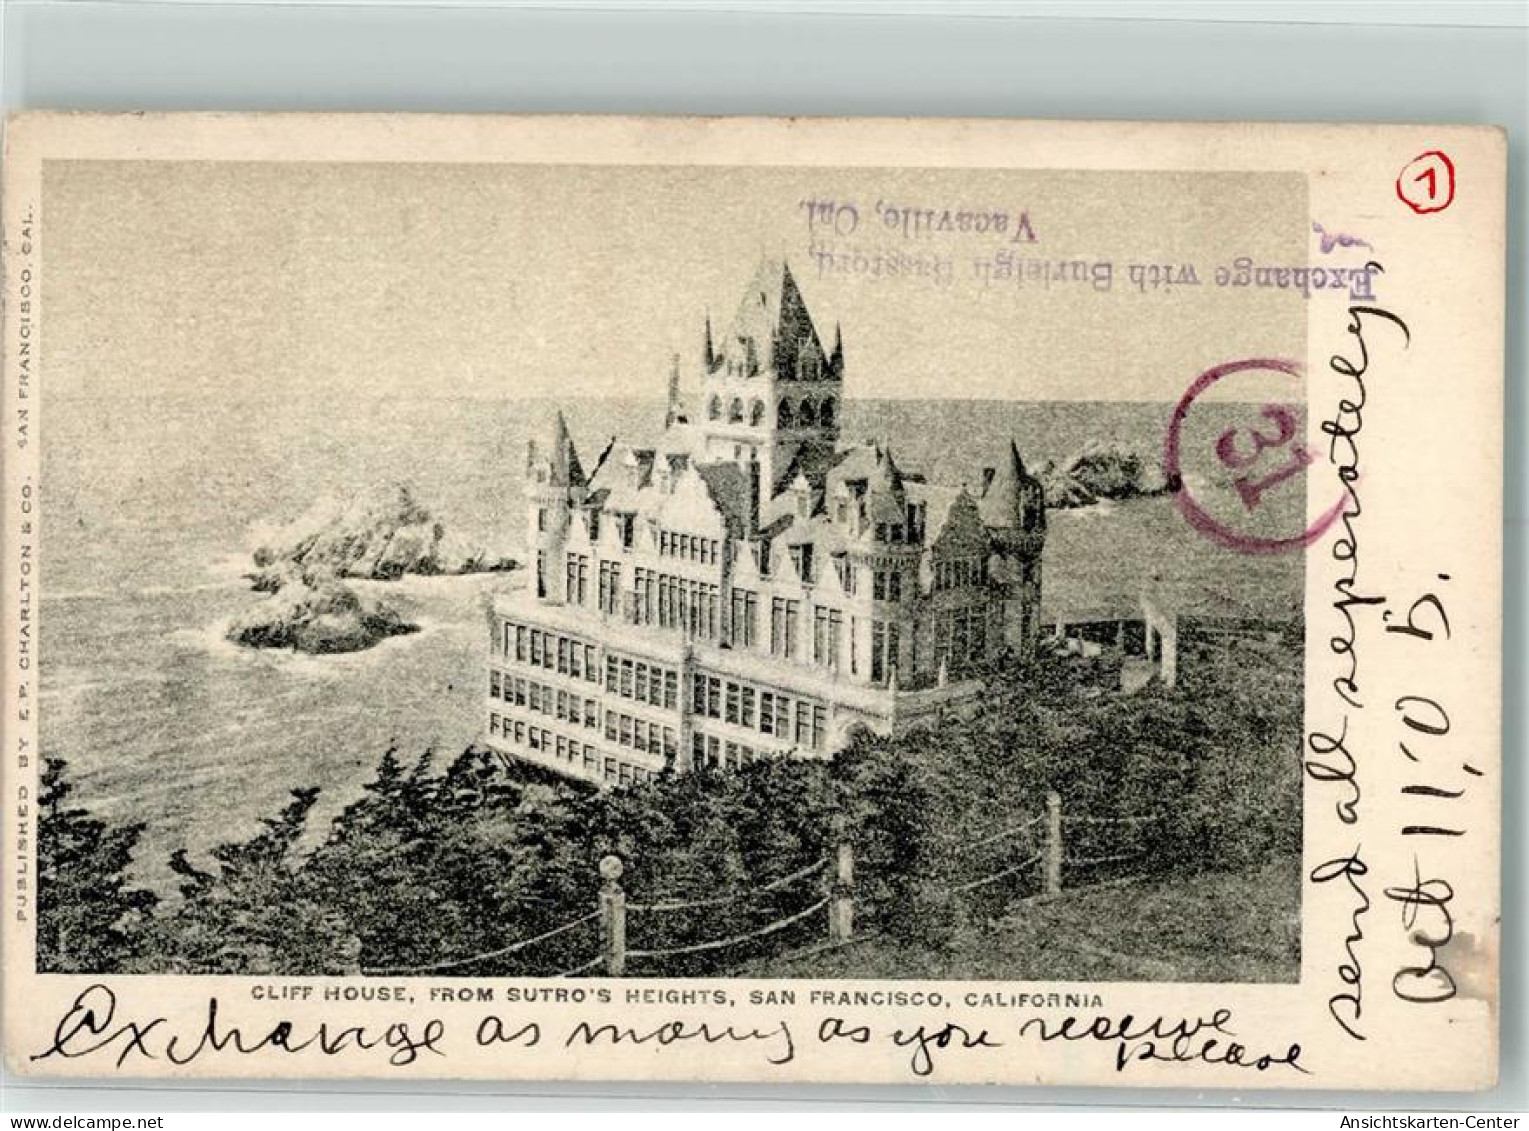 Exchange with Burleigh
Vacaville, Cal.
1
31
PUBLISHED BY E.P. CHARLTON & CO. SAN FRANCISCO, CAL.
CLIFF HOUSE, FROM SUTRO'S HEIGHTS, SAN FRANCISCO, CALIFORNIA
Exchange as many as you receive
please
send all seperately,
Oct 11, 05.
delcampe.net
Ansichtskarten-Center